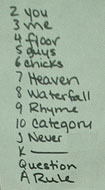 2 you
3 me
4 floor
5 guys
6 chicks
7 Heaven
8 Waterfall
9 Rhyme
10 Category
J Never
K
Question
A Rule